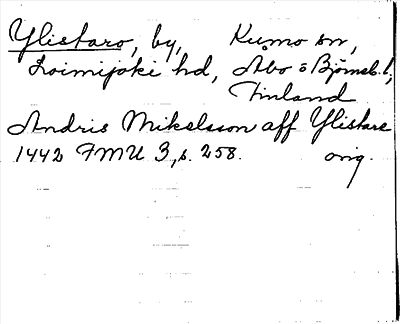 Ylistaro, by, Kumo sn,
Loimijoki hd, Åbo ö Björneb. l;
Finland
Andris Mikelsson aff Ylistaro
1442 FMU 3, s. 258. orig.